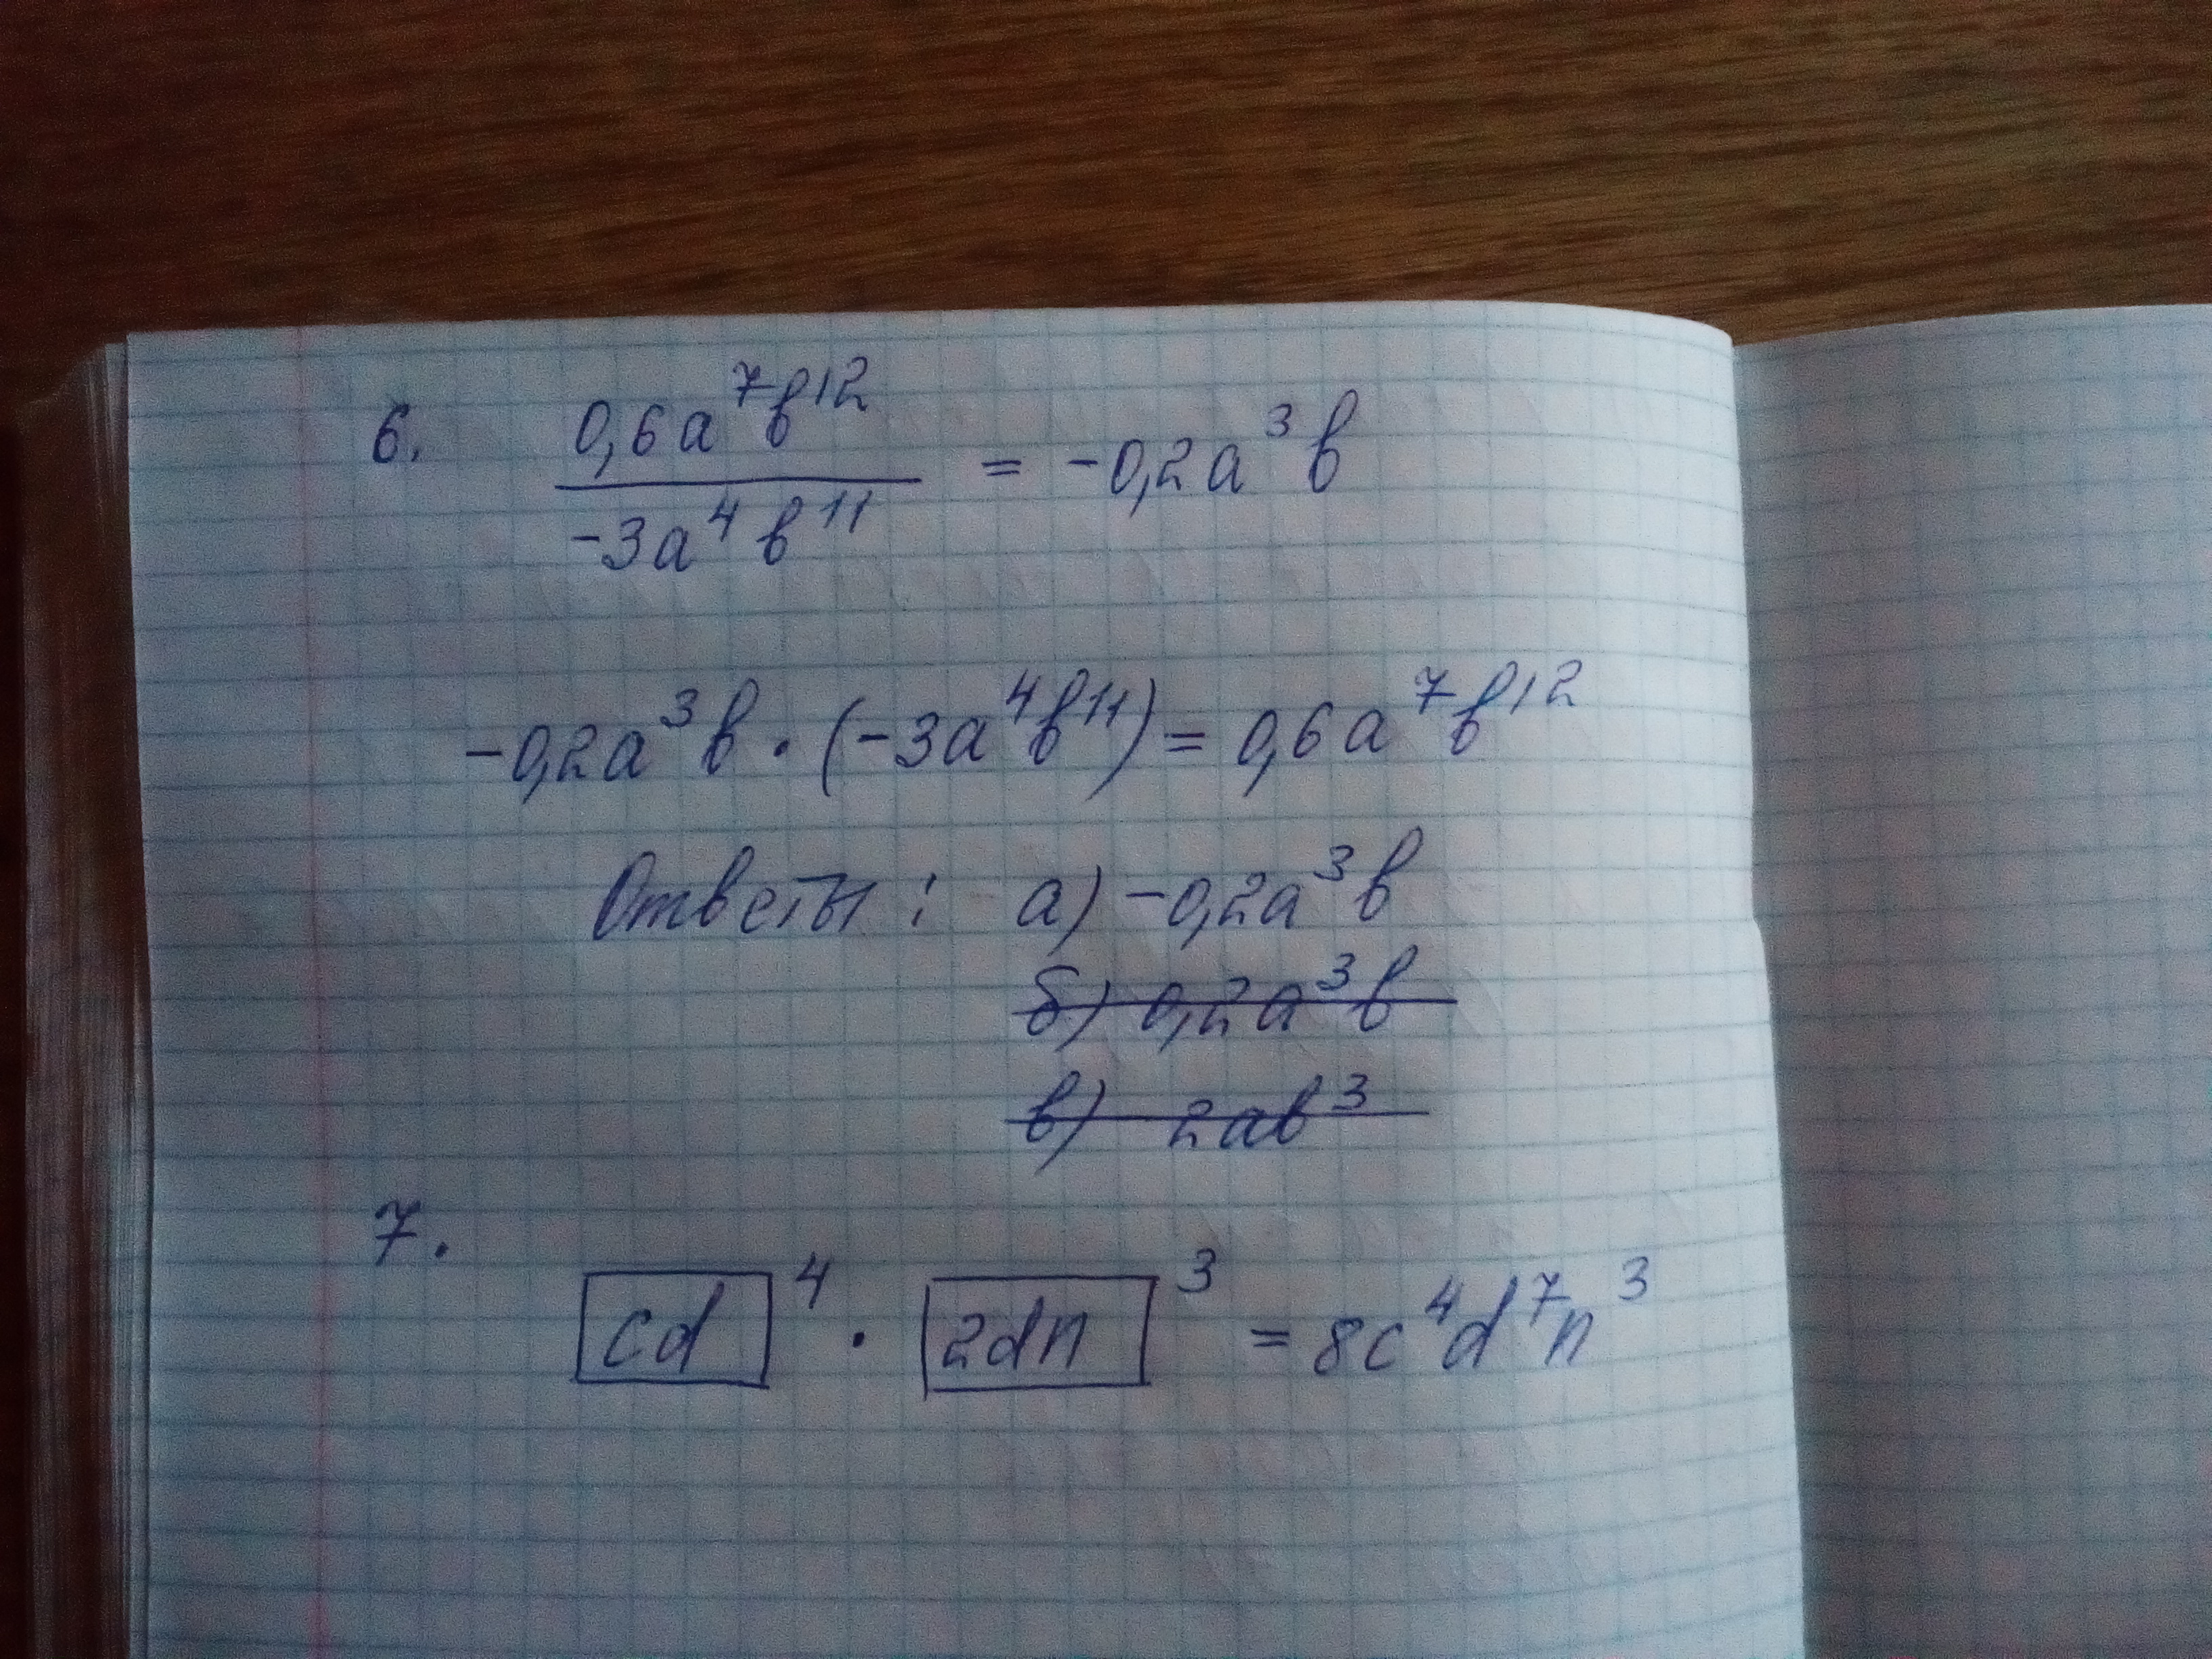 6. 0,6a⁷b¹² / -3a⁴b¹¹ = -0,2a³b
-0,2a³b · (-3a⁴b¹¹) = 0,6a⁷b¹²
Ответы: а) -0,2a³b
б) 0,2a³b
в) 2ab³
7. cd⁴ · 2dn³ = 8c⁴d⁷n³